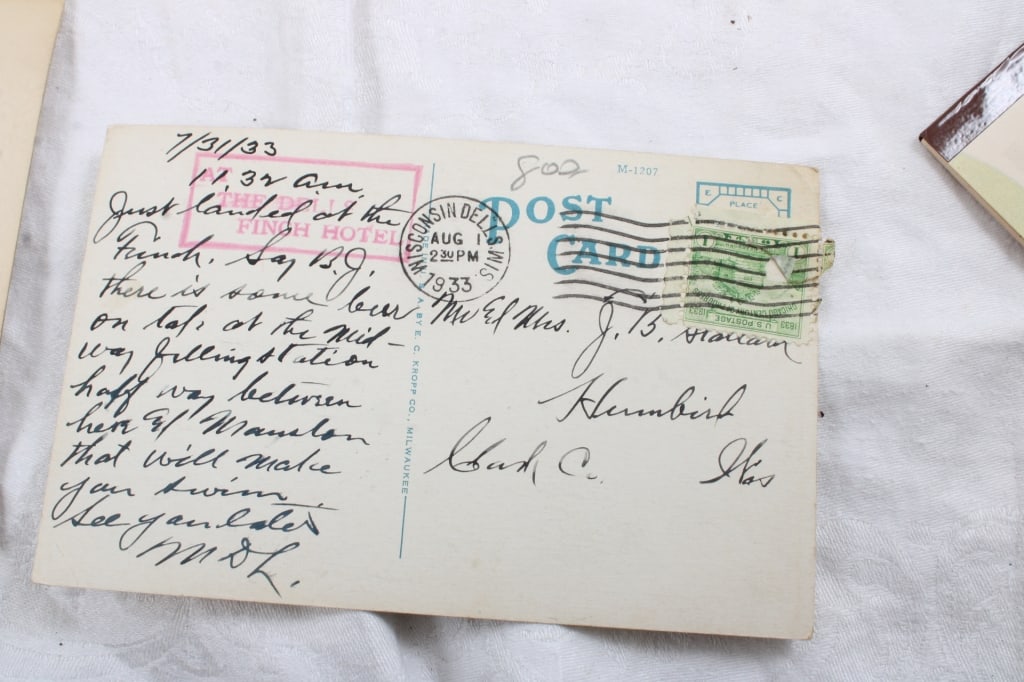 7/31/33
11,32 am
AT
THE DELLS
FINCH HOTEL
Just landed at the
Finch. Say B.J.
there is some beer
on tap at the Mid-
way filling station
half way between
here & Mauston
that will make
you swim
See you later
MDL.
E. C. KROPP CO., MILWAUKEE
800
M-1207
POST
CARD
PLACE
WISCONSIN DELLS, WIS.
AUG 1
230 PM
1933
U.S. POSTAGE
1833 1933
Mr & Mrs. J. B.
Humbird
Clark Co. Wis